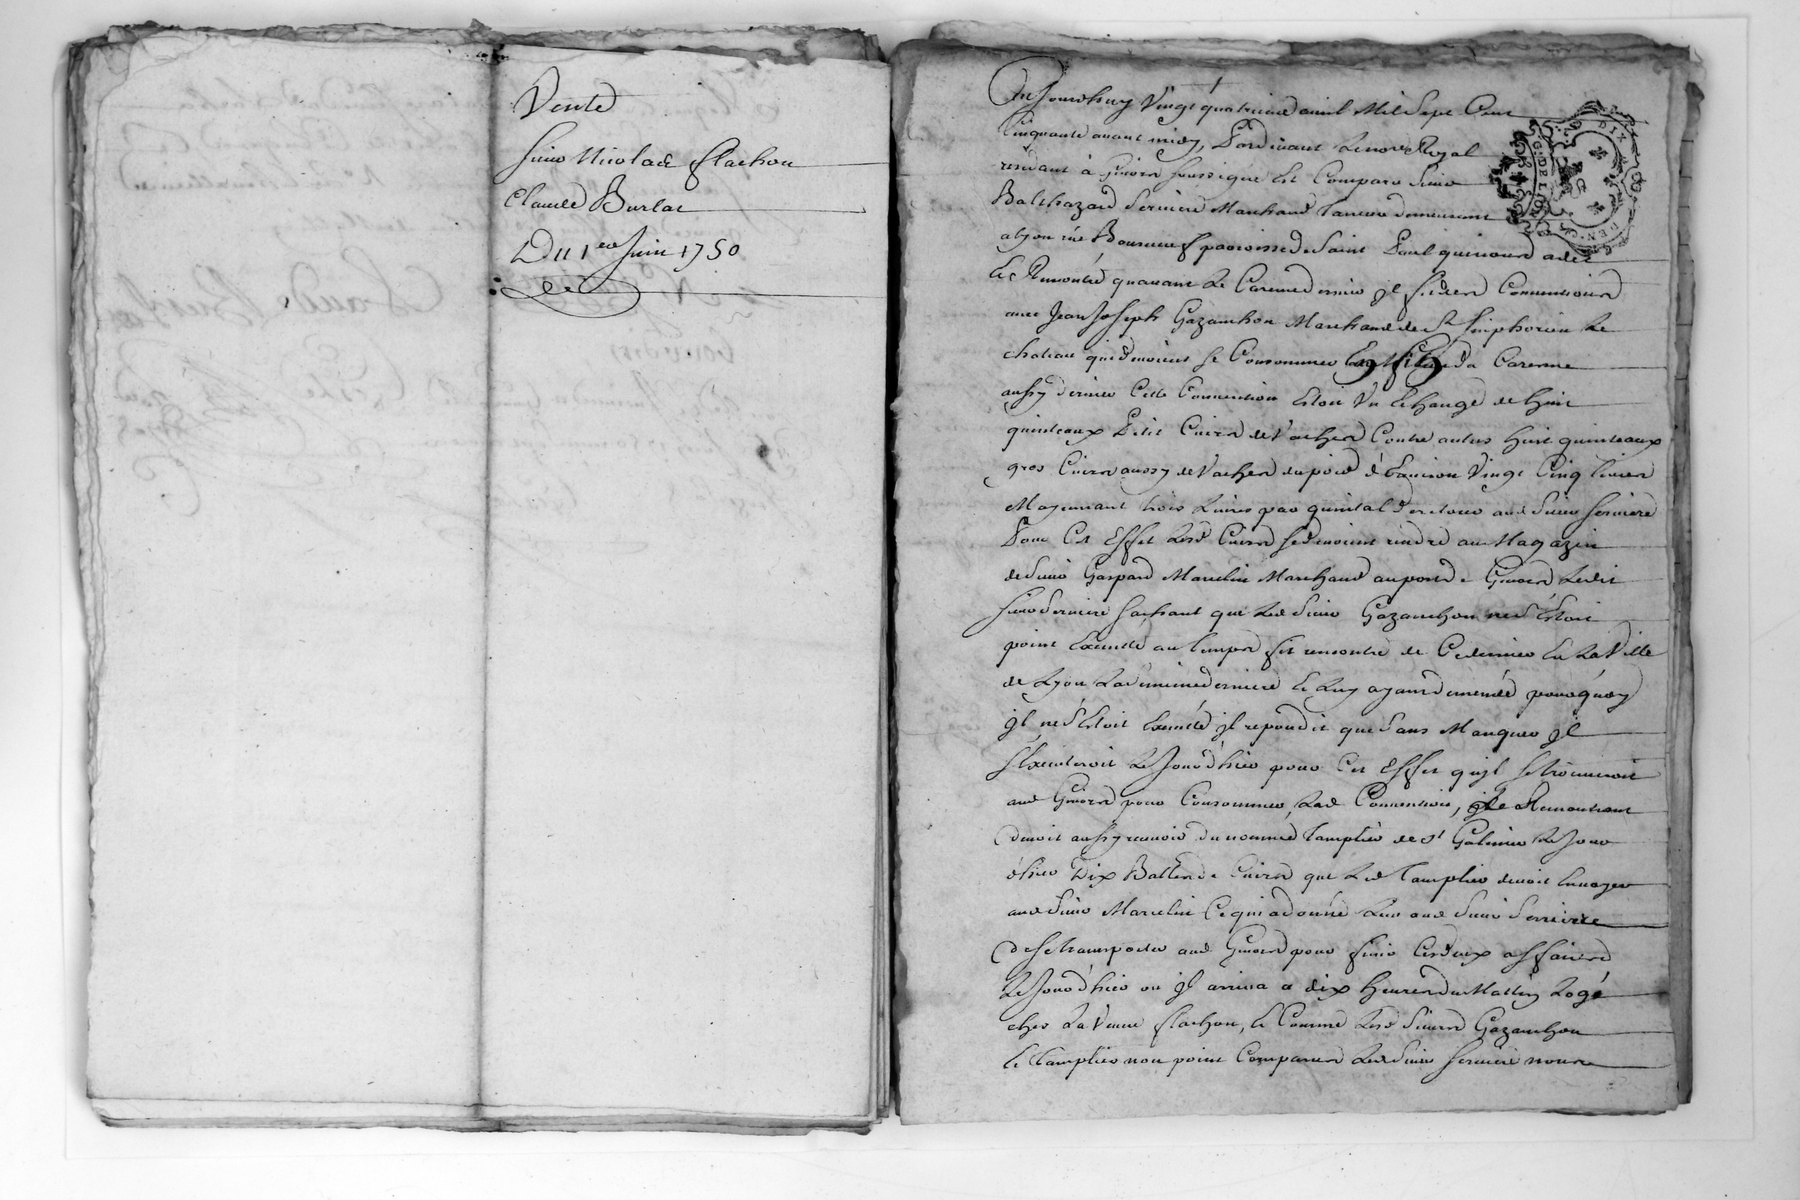 Vente
Sieur Nicolas flachon
Claude Burlat
Du 1er Juin 1750
Cejourdhuy Vingt quatrieme avril Mil Sept Cent
Cinquante avant midy, Pardevant Le nore Royal
residant à Givors soussigné Est Comparu Sieur
Balthazard Serriere Marchand Tanneur demeurant
a Lyon rüe paroisse de Saint Paul qui nous a dit
Et Remontré quavant Le Careme dernier jl fit des Conventions
avec Jean Joseph Gazanchon Marchand de St Simphorien Le
chateau qui devoient se Consommer La Careme
aussy dernier Cette Convention Etoit Un Echange de huit
quinteaux Petit Cuirs de Vaches Contre autres huit quinteaux
gros Cuirs aussy de Vaches du poid d'Environ Vingt Cinq livres
Moyennant trois Livres par quintal de retour aud Sieur Serriere
Pour Cet Effet Lesd Cuirs se devoient rendre au Magazin
de Sieur Gaspard Marcelin Marchand au port de Givors Ledit
Sieur Serriere Sachant que Led Sieur Gazanchon ne S'Etoit
point Executé au temps fit rencontre de Ce dernier En La Ville
de Lyon La semaine derniere Et Luy ayant demandé pourquoy
jl ne S'Etoit Executé jl repondit que Sans Manquer jl
S'Executeroit Le Jour d'hier pour Cet Effet qu'jl Se trouveroit
aud Givors pour Consommer Lad Convention, Le Remontrant
devoit aussy recevoir du nommé Tamplier de St Galmier Le Jour
d'hier Dix Balles de Cuirs que Led Tamplier devoit Envoyer
aud Sieur Marcelin Ce qui a donné Lieu aud Sieur Serriere
de Se transporter aud Givors pour finir Ces deux affaires
Le Jour d'hier ou jl arriva a dix heures du Mattin Logé
ches La Veuve flachon, Et Comme Lesd Sieurs Gazanchon
Et Tamplier non point Comparus Led Sieur Serriere nous
G. DE LYON
DIX D
DEN.